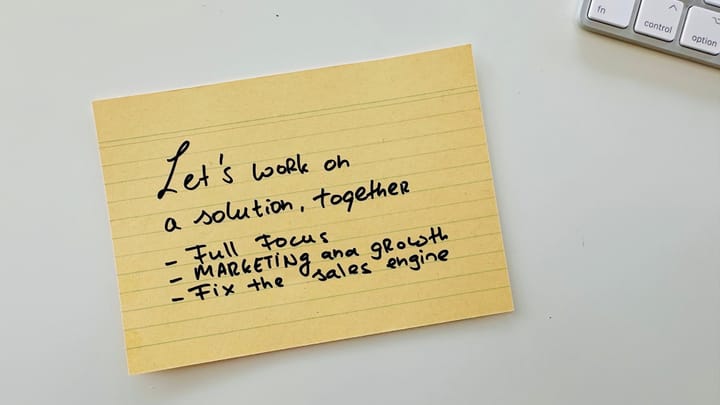 Let's work on
a solution, together
- Full Focus
- MARKETING and gROwth
- Fix the sales engine
fn
control
option